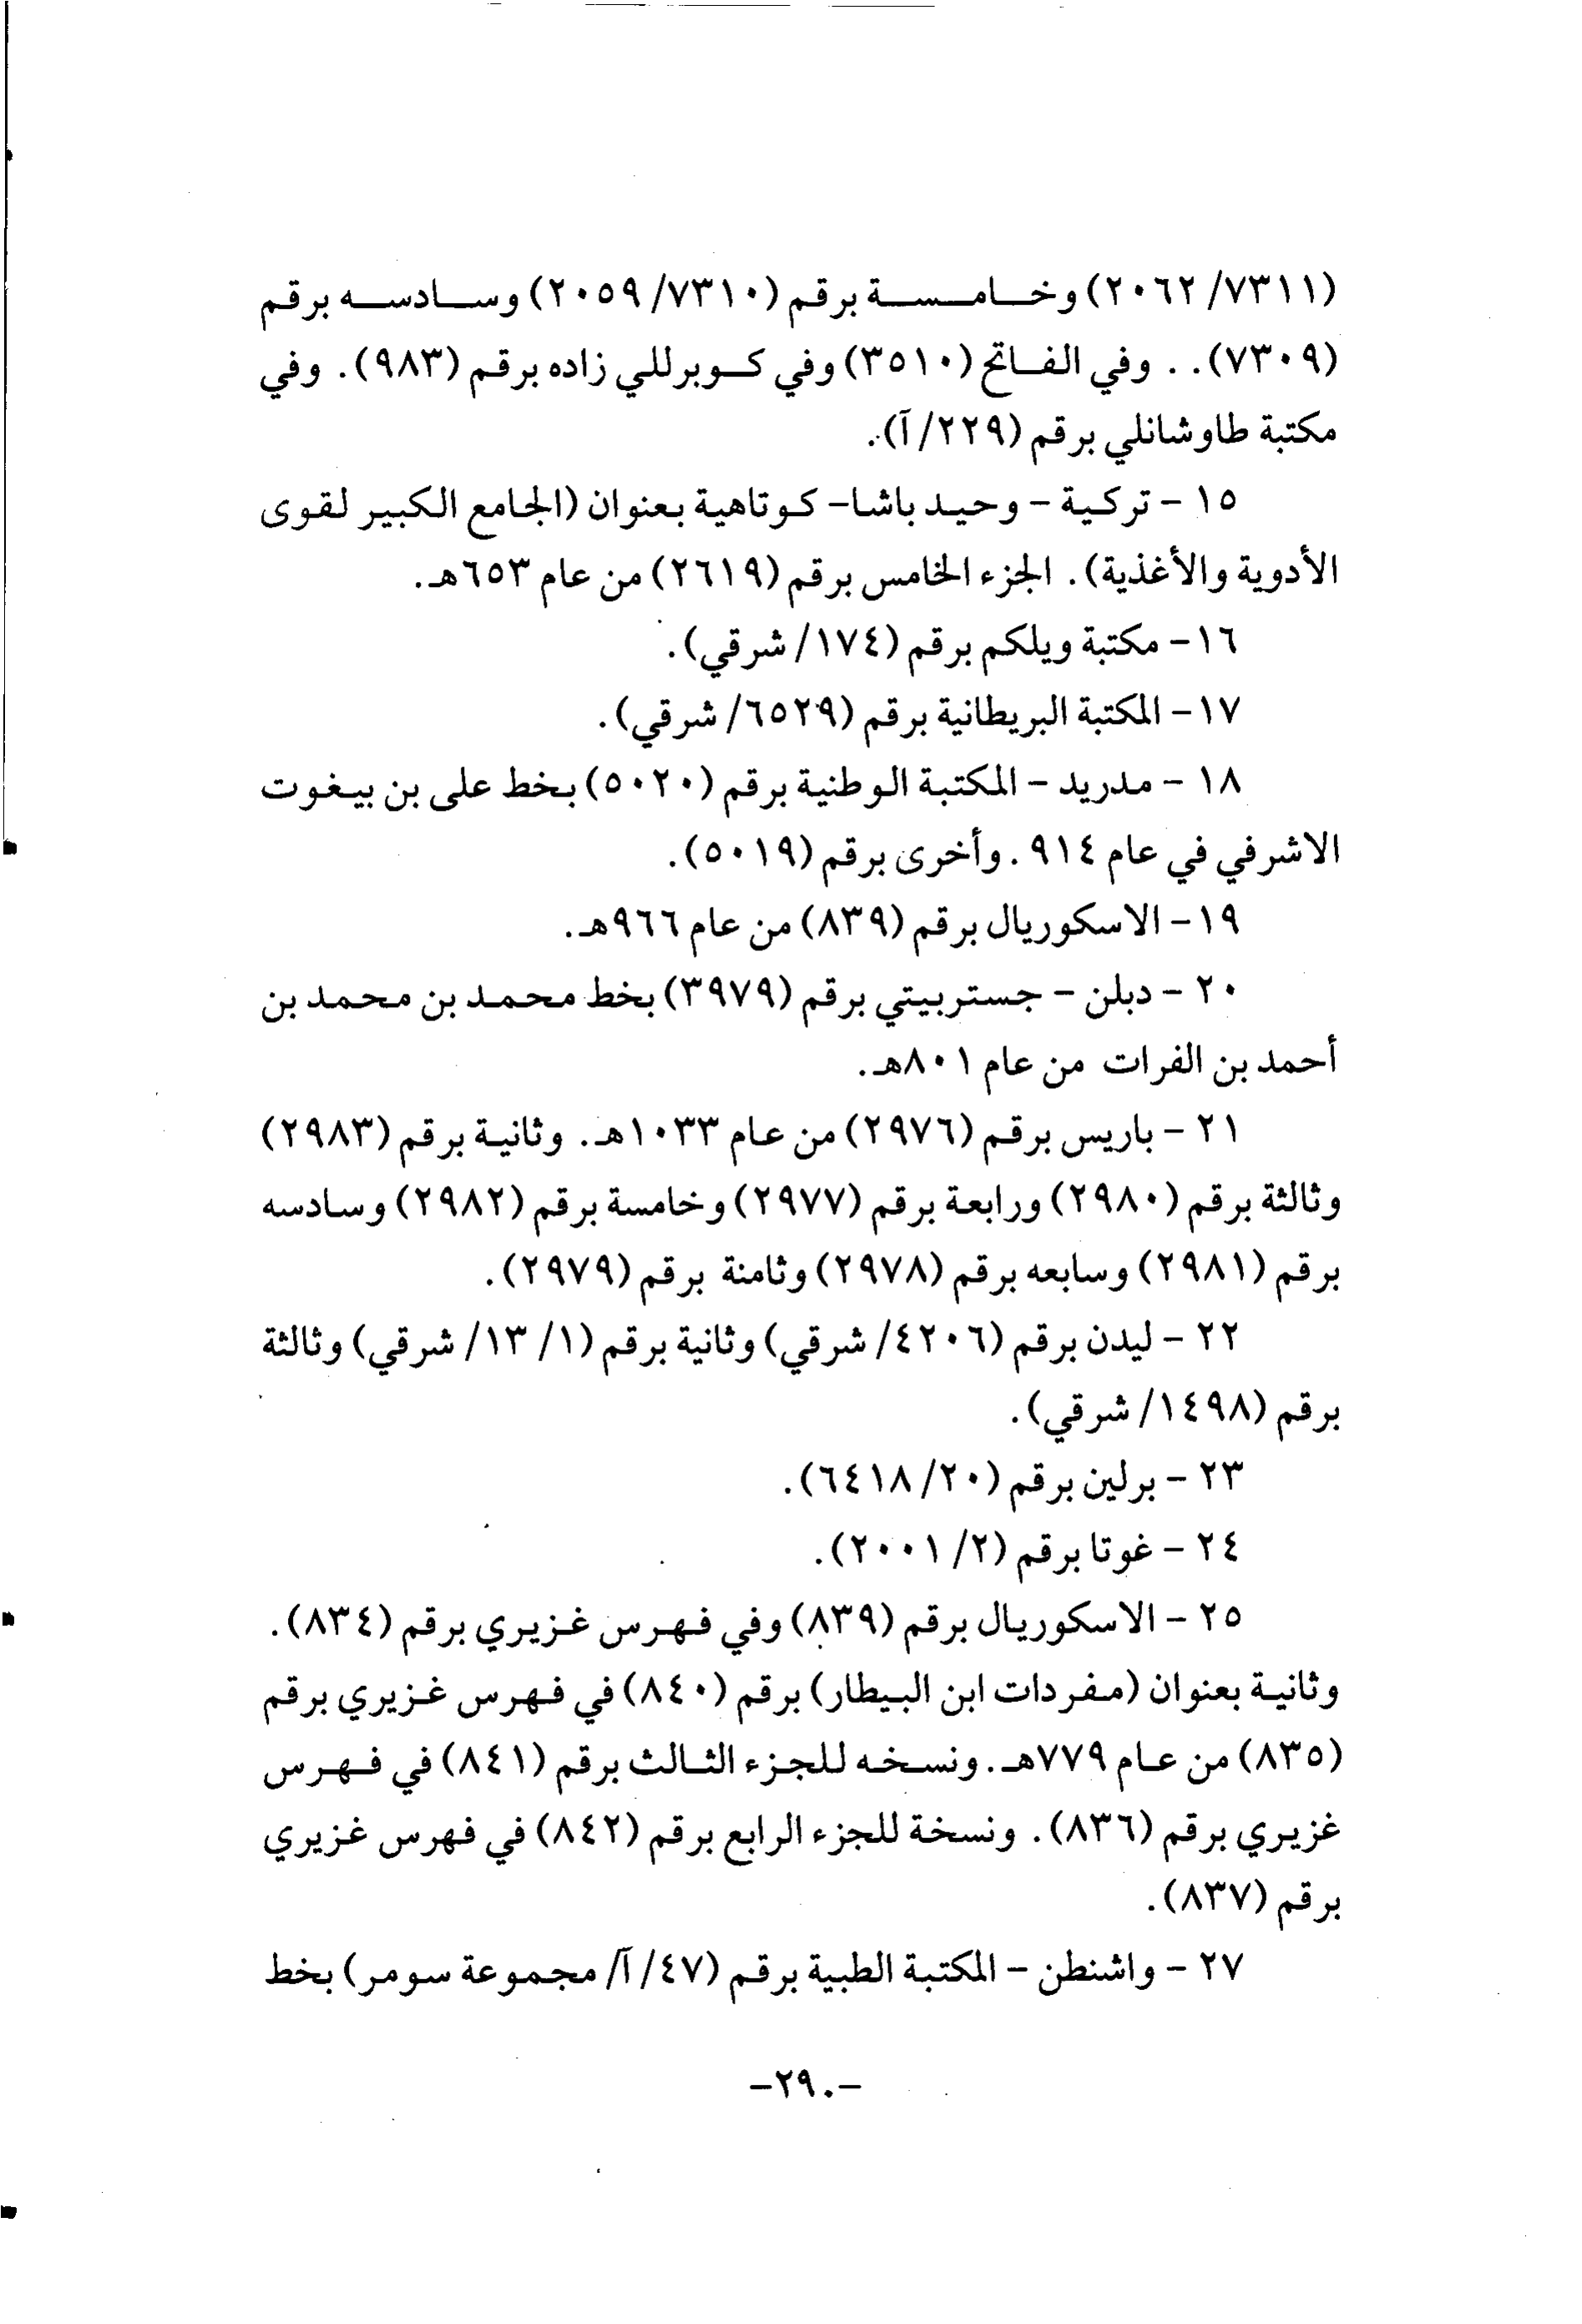 (٧٣١١/ ٢٠٦٢) وخامسة برقم (٧٣١٠/ ٢٠٥٩) وسادسه برقم
(٧٣٠٩). . وفي الفاتح (٣٥١٠) وفي كوبرللي زاده برقم (٩٨٣). وفي
مكتبة طاوشانلي برقم (٢٢٩/ آ).
١٥ - تركية - وحيد باشا- كوتاهية بعنوان (الجامع الكبير لقوى
الأدوية والأغذية). الجزء الخامس برقم (٢٦١٩) من عام ٦٥٣هـ.
١٦- مكتبة ويلكم برقم (١٧٤/ شرقي).
١٧- المكتبة البريطانية برقم (٦٥٢٩/ شرقي).
١٨ - مدريد - المكتبة الوطنية برقم (٥٠٢٠) بخط على بن بيغوت
الاشرفي في عام ٩١٤. وأخرى برقم (٥٠١٩).
١٩- الاسكوريال برقم (٨٣٩) من عام ٩٦٦هـ.
٢٠ - دبلن - جستربيتي برقم (٣٩٧٩) بخط محمد بن محمد بن
أحمد بن الفرات من عام ٨٠١هـ.
٢١ - باريس برقم (٢٩٧٦) من عام ١٠٣٣هـ. وثانية برقم (٢٩٨٣)
وثالثة برقم (٢٩٨٠) ورابعة برقم (٢٩٧٧) وخامسة برقم (٢٩٨٢) وسادسه
برقم (٢٩٨١) وسابعه برقم (٢٩٧٨) وثامنة برقم (٢٩٧٩).
٢٢ - ليدن برقم (٤٢٠٦/ شرقي) وثانية برقم (١/ ١٣/ شرقي) وثالثة
برقم (١٤٩٨/ شرقي).
٢٣ - برلين برقم (٢٠/ ٦٤١٨).
٢٤ - غوتا برقم (٢/ ٢٠٠١).
٢٥ - الاسكوريال برقم (٨٣٩) وفي فهرس غزيري برقم (٨٣٤).
وثانية بعنوان (مفردات ابن البيطار) برقم (٨٤٠) في فهرس غزيري برقم
(٨٣٥) من عام ٧٧٩هـ. ونسخه للجزء الثالث برقم (٨٤١) في فهرس
غزيري برقم (٨٣٦). ونسخة للجزء الرابع برقم (٨٤٢) في فهرس غزيري
برقم (٨٣٧).
٢٧ - واشنطن - المكتبة الطبية برقم (٤٧/ آ/ مجموعة سومر) بخط
-٢٩٠-